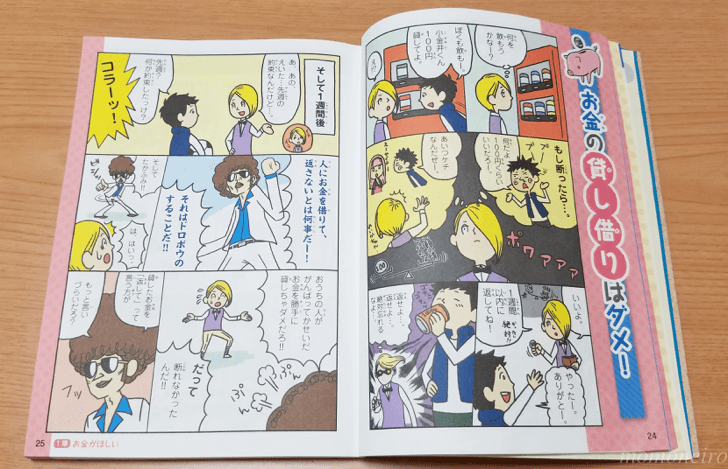 お金の貸し借りはダメ！
何を
飲もう
かなー？
ぼくも飲もー。
小金井くん
100円
貸してよ。
え？
もし断ったら…。
何だよ
100円ぐらい
いいだろー！
あいつケチ
なんだぜー。
ポワアアア
いいよ。
1週間
以内に
返してね！
やったー。
ありがとー。
24
そして1週間後
あ、あの、
えいた…先週の
約束なんだけど…。
先週？
何か約束したっけ？
コラーッ！
人にお金を借りて、
返さないとは何事だー！
それはドロボウの
することだ!!
そして
たかふみ!!
は、はいっ。
おうちの人が
がんばってかせいだ
お金を勝手に
貸しちゃダメだろ!!
だって
断れなかった
んだ!!
ぷん
ぷん
貸したお金を
「返して」って
言うほうが
もっと言い
づらいだろ？
フッ
25
1章
お金がほしい
momoneiro